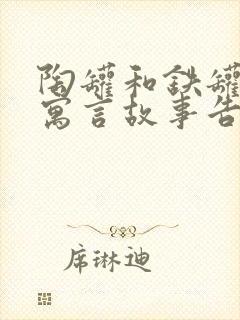 陶罐和铁罐
寓言故事告
席琳迪